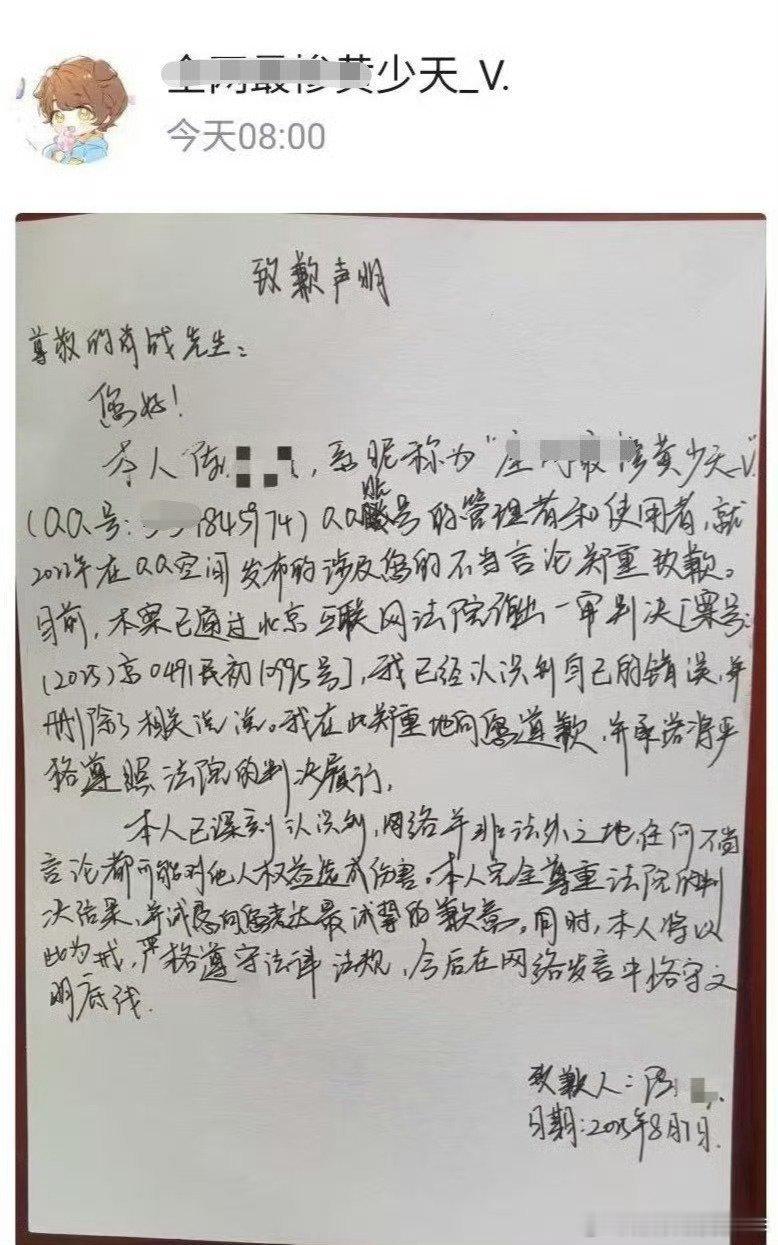 全网最惨黄少天_V.
今天08:00
致歉声明
尊敬的肖战先生：
您好！
本人陈，系昵称为“黄少天_V.”
(QQ号：845974) QQ账号的管理者和使用者，就
2022年在QQ空间发布的涉及您的不当言论郑重致歉。
目前，本案已通过北京互联网法院作出一审判决[案号：
(2025)京0491民初10995号]，我已经认识到自己的错误，并
删除了相关说说。我在此郑重地向您道歉，并承诺将严
格遵照法院的判决履行。
本人已深刻认识到，网络并非法外之地，任何不当
言论都可能对他人权益造成伤害。本人完全尊重法院的判
决结果，并诚恳向您表达最诚挚的歉意。同时，本人将以
此为戒，严格遵守法律法规，今后在网络发言中恪守文
明底线.
致歉人：陈
日期：2025年8月7日.